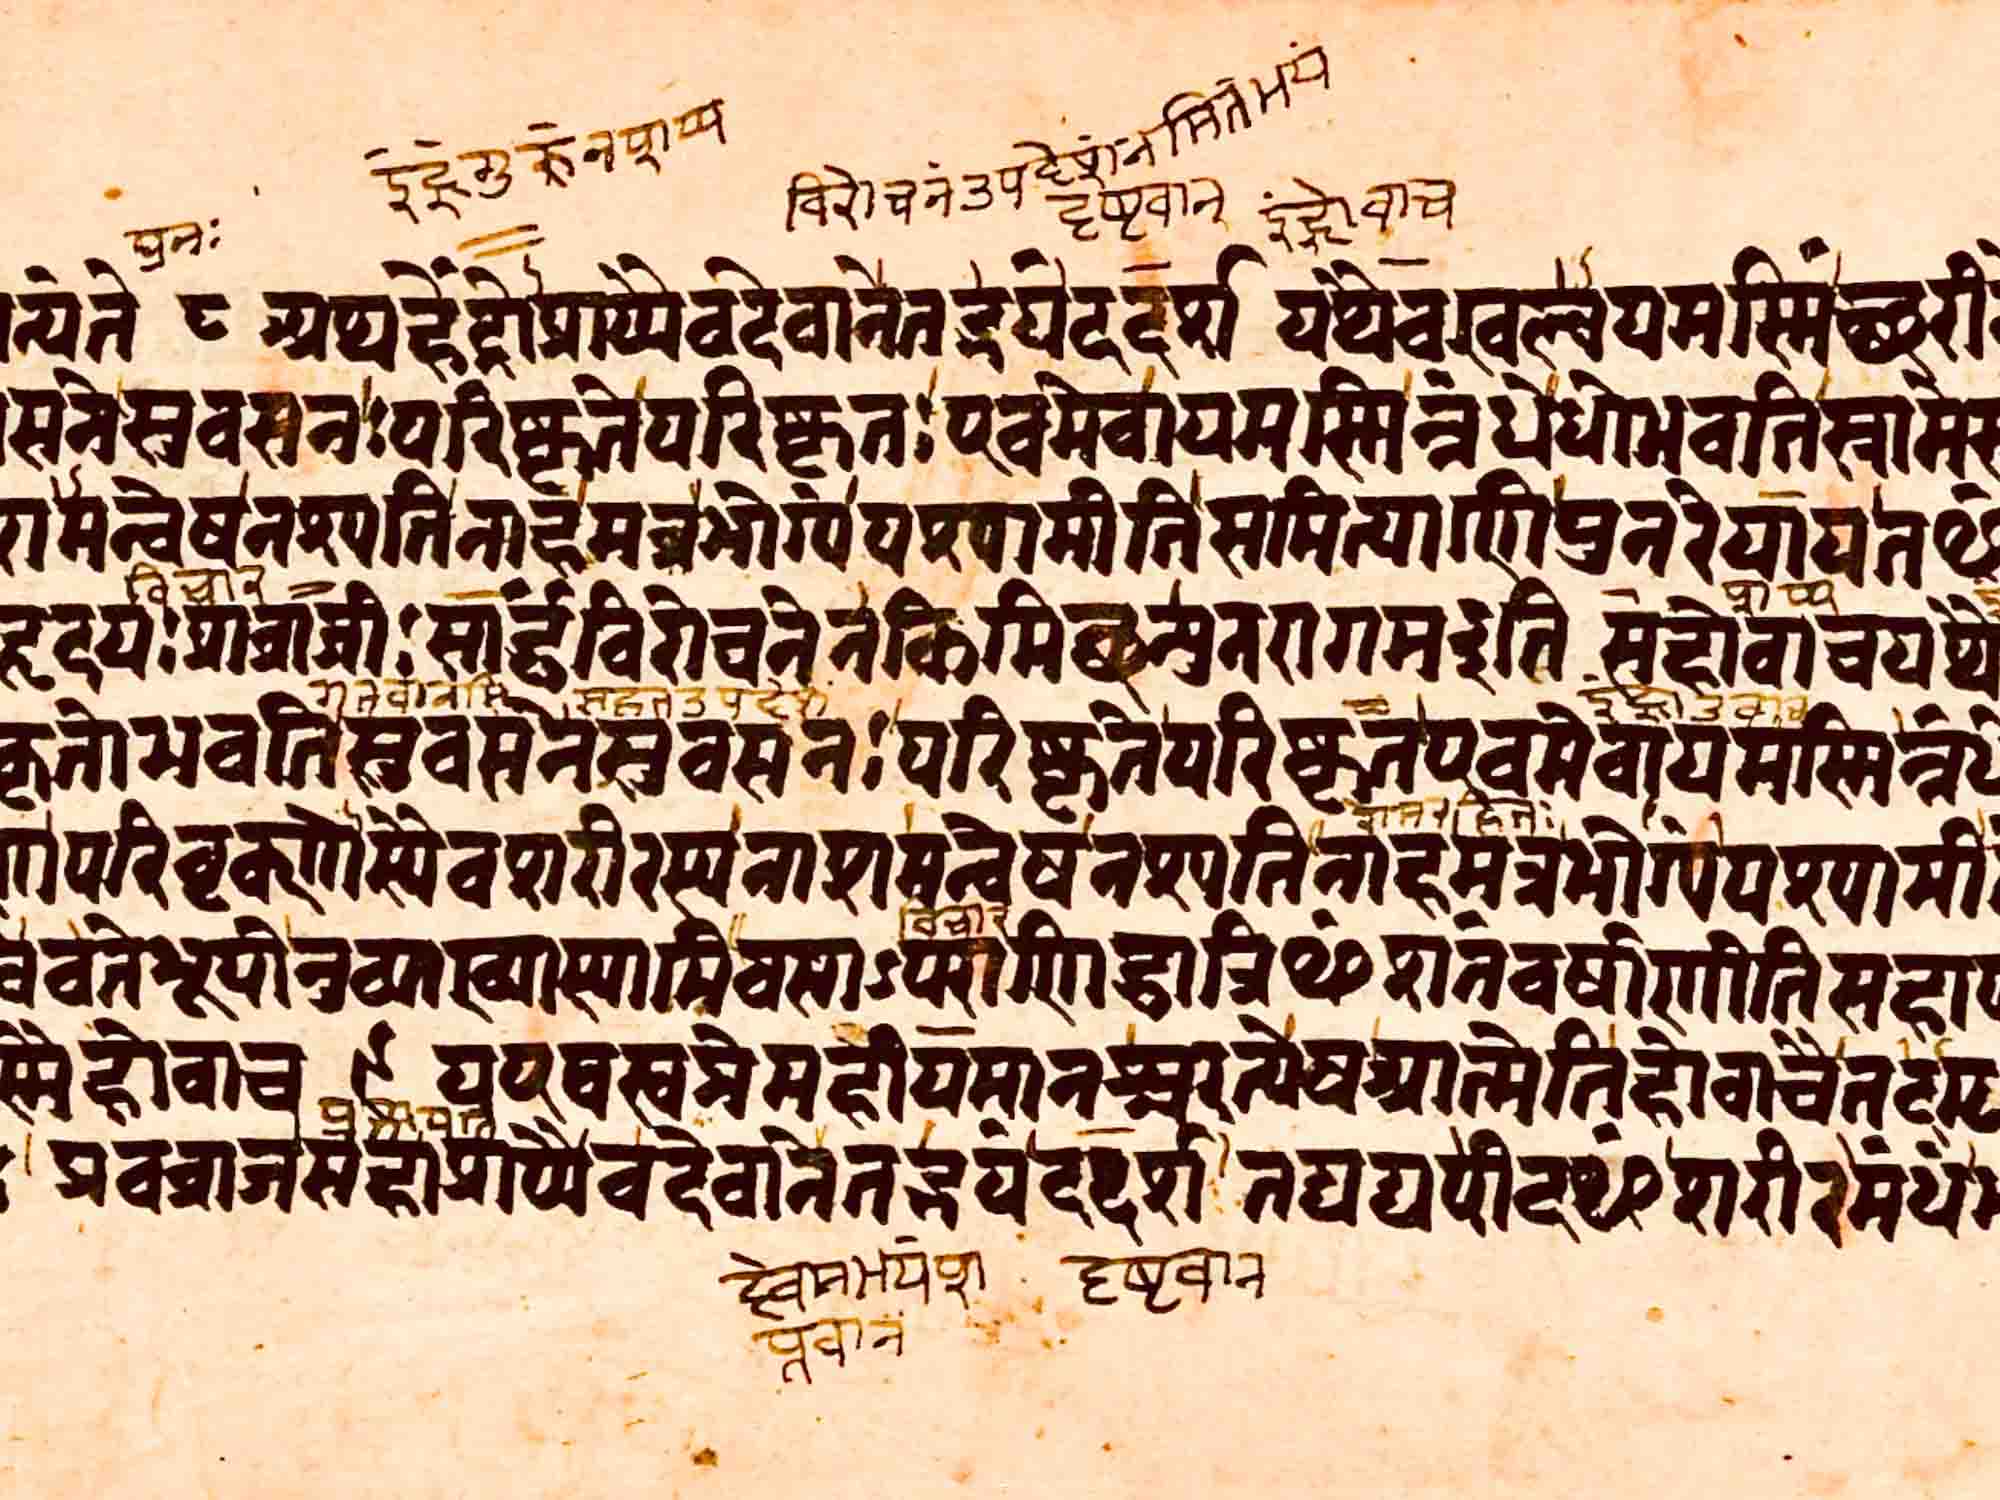 इंद्रंगुरुंनप्राप्य
विरोचनंउपदेशंनमितंमयं
पुनः
दृष्टवान् इंद्रोवाच
न्यंते ८ अथहेंद्रोप्राप्यैवदेवानेतद्भयंददर्श यथैवखल्वयमस्मिंच्छरी
सनेसुवसनःपरिष्कृतेपरिष्कृतःएवमेवायमस्मिन्नंधेंधोभवतिस्रामेस्
मन्वेषनश्यतिनाहमत्रभोग्यंपश्यामीतिसमित्पाणीपुनरेयायतꣳ
विचार प्राप्य
हृदयःप्राव्राजीःसार्द्धंविरोचनेनकिमिच्छन्पुनरागमइति सहोवाचयथै
गतवानसि सहतउपदेशं इंद्रउवाच
कृतोभवतिसुवसनेसुवसनःपरिष्कृतेपरिष्कृतएवमेवायमस्मिन्नंधें
परिवृक्णेस्यैवशरीरस्यनाशमन्वेषनश्यतिनाहमत्रभोग्यंपश्यामी
विचार
वतेभूयोनुव्याख्यास्यामिवसाऽपराणिद्वात्रिꣳशतंवर्षाणीतिसहाप
स्मैहोवाच ९ यएषस्वप्नेमहीयमानश्चरत्येषआत्मेतिहोवाचैत
प्रवव्राजसहाप्राप्यैवदेवानेतद्भयंददर्श तद्यद्यपीदꣳशरीरमंधंभ
देवानभयंप्रा दृष्टवान
प्तवान